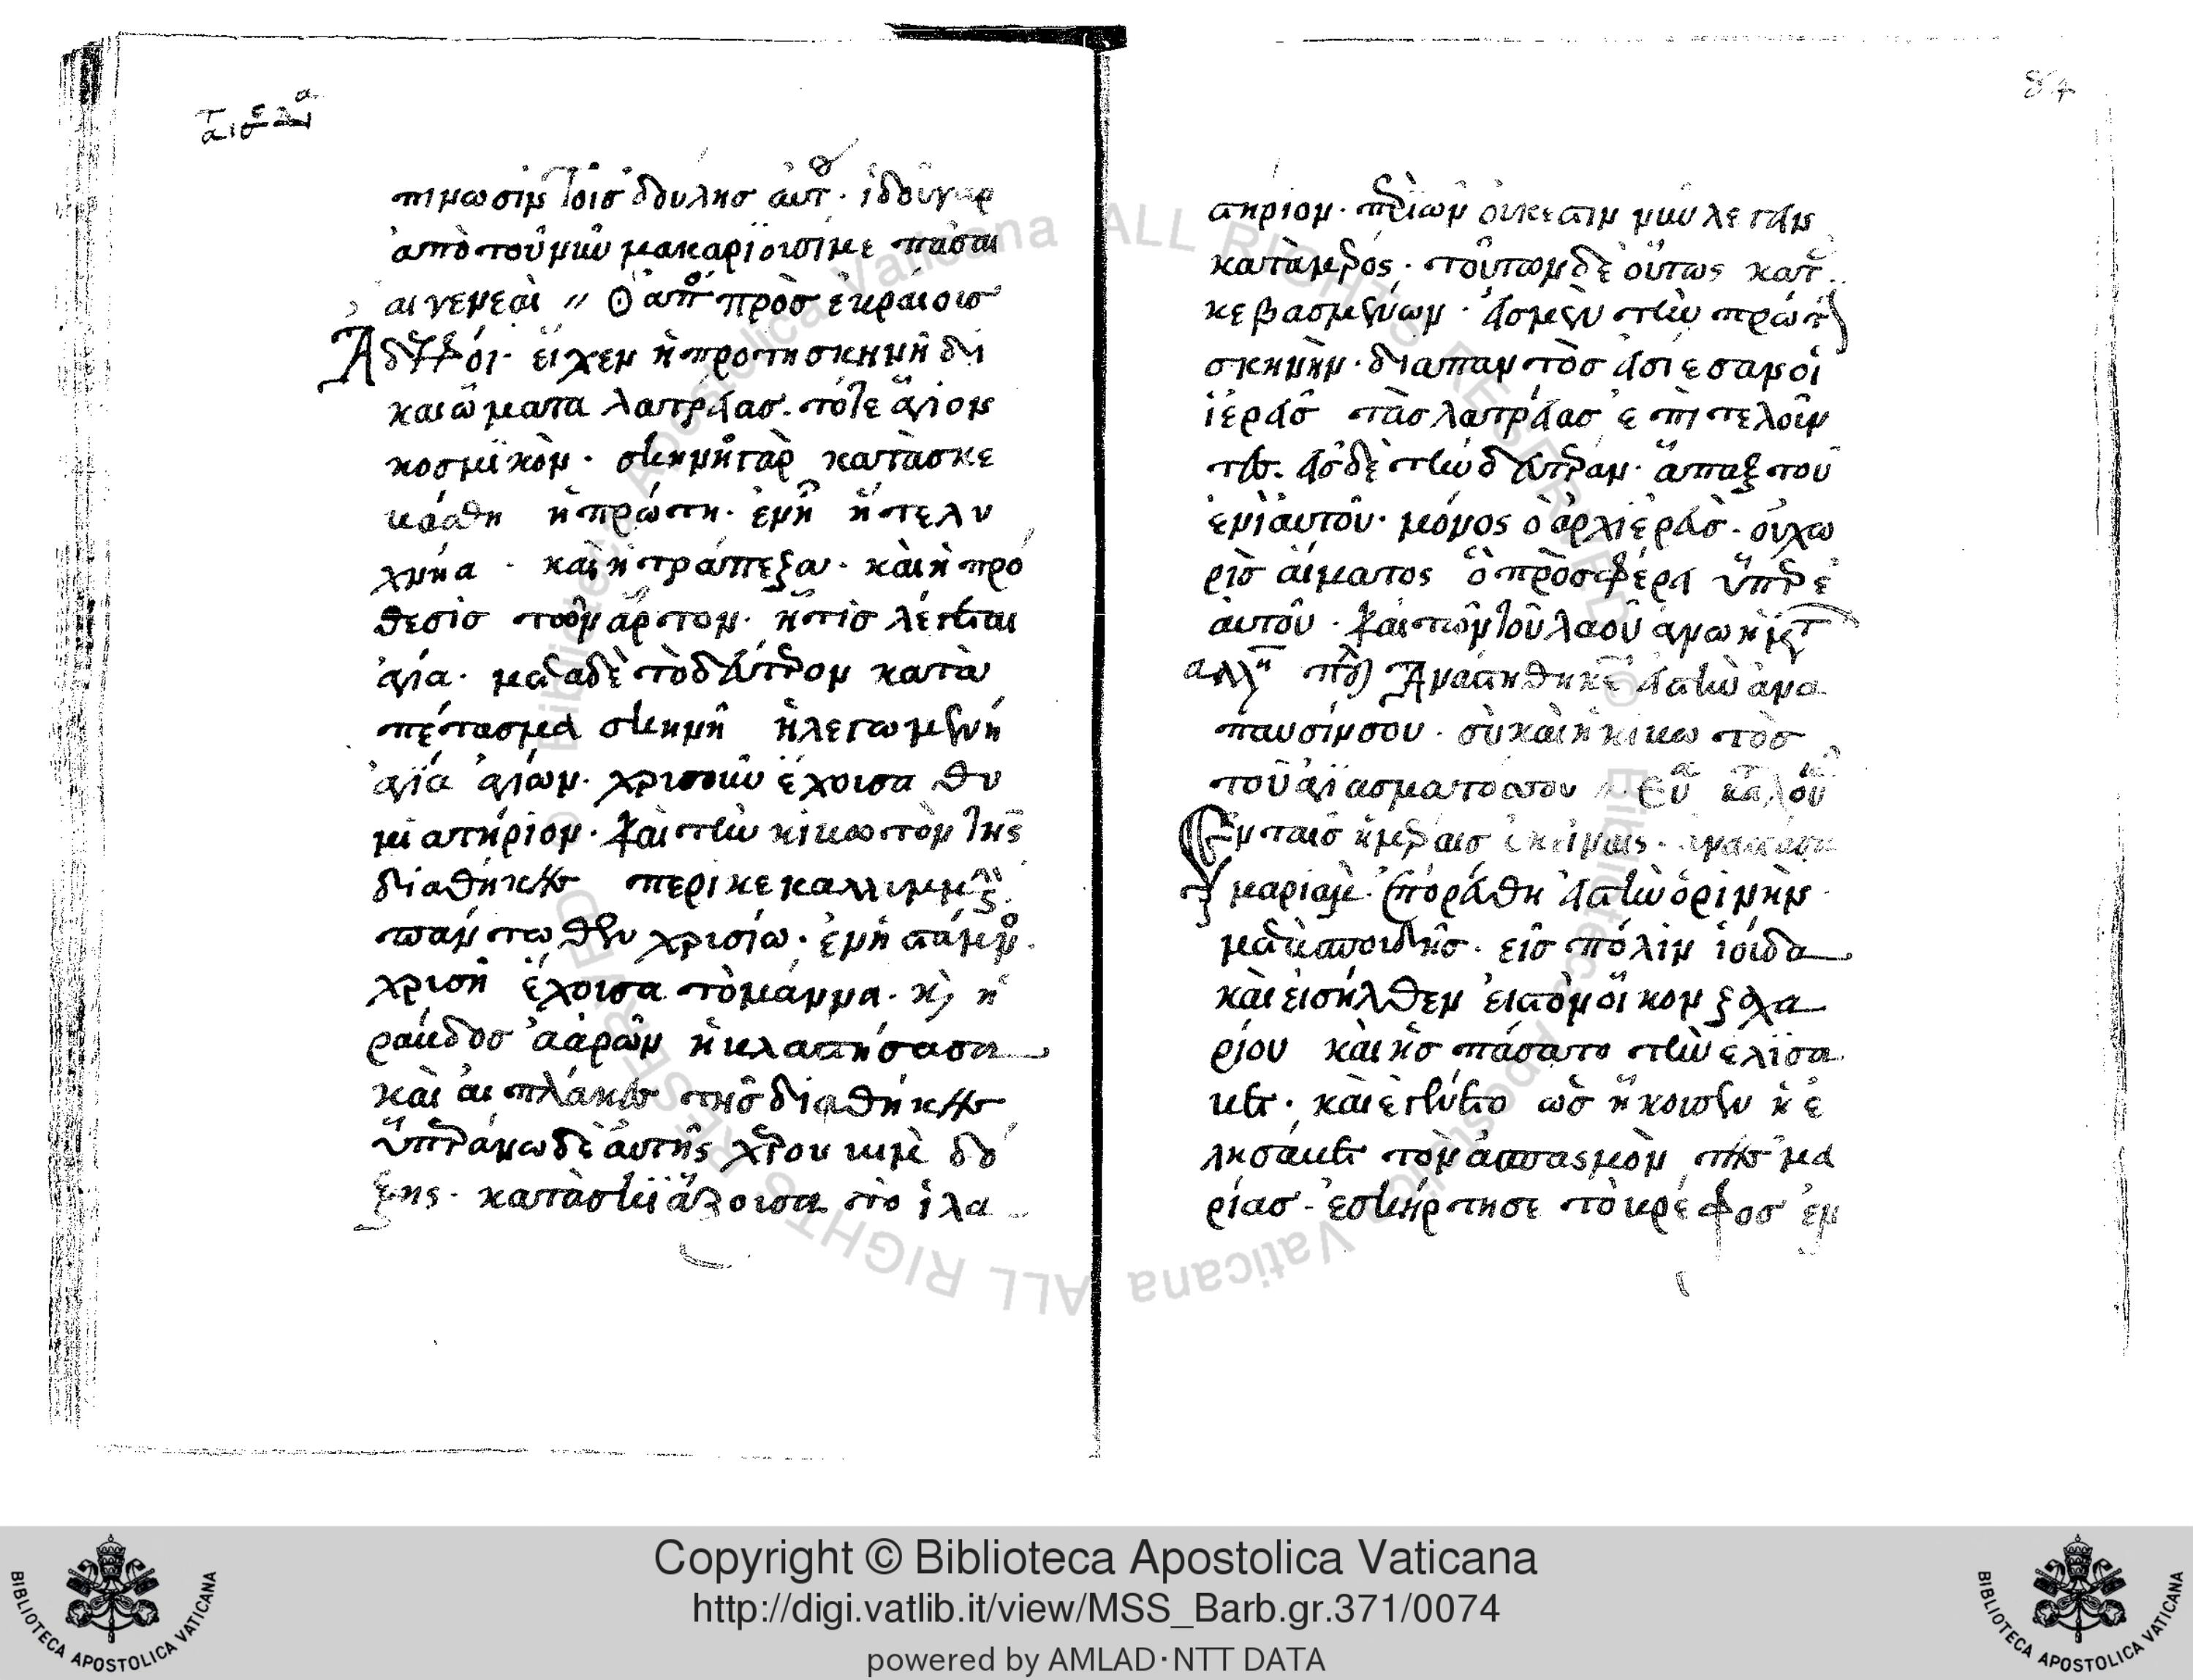 πινωσιν τοισ δουλησ αυτ · ιδου γαρ
απο του νυν μακαριοισιμε πασαι
αι γενεαι ,, Ο απο προσ εκραιοισ
Αδελφοι · ειχεν η προτη σκηνη δι
καιωματα λατρειασ · τοτε αγιον
κοσμικον · σκηνη γαρ κατασκε
υασθη η πρωτη · εν η η τε λυ
χνηα · και η τραπεζα · και η προ
θεσισ τον αρτον · ητισ λεγεται
αγια · μετα δε το δευτερον κατα
πετασμα σκηνη η λεγωμενη
αγια αγιων · χρισουν εχοισα θυ
μιατηριον · και την κικωτον της
διαθηκησ περικεκαλλιμμεν
παντωθεν χρισιω · εν η σταμνος
χριση εχοισα το μαννα · κ, η
ραυδοσ ααρων η υλαστησασα
και αι πλακεσ τησ διαθηκησ
υπερανω δε αυτης χερουυιμ δο
ξης · κατασκιαζοισα το ιλα
84
στηριον · περι ων ουκ εστιν νυν λεγειν
κατα μερος · τουτων δε ουτως κατ
κεβασμενων · εισ μεν την πρωτ
σκηνην · δια παντοσ εισιεσαν οι
ιερεισ τασ λατρειασ επιτελουν
τεσ · εισ δε την δευτεραν · απαξ του
ενιαυτου · μονος ο αρχιερευσ · ου χω
ρισ αιματος ο προσφερει υπερ ε
αυτου · και των του λαου αγνωηματ
αλλη Αναστηθη κε εισ την ανα
παυσιν σου · συ και η κικωτοσ
του αγιασματοσ σου Ευα κατα λου
Εν ταισ ημεραισ εκειναις · αναστασα
μαριαμ · επορευθη εισ την ορινην
μετα σπουδησ · εισ πολιν ιοιδα
και εισηλθεν εισ τον οικον ζαχα
ριου και ησπασατο την ελισα
υετ · και εγενετο ωσ ηκοισεν η ε
λησαυετ τον ασπασμον τησ μα
ριασ · εσκηρτησε το υρεφοσ εν
Copyright © Biblioteca Apostolica Vaticana
http://digi.vatlib.it/view/MSS_Barb.gr.371/0074
powered by AMLAD·NTT DATA
BIBLIOTECA APOSTOLICA VATICANA
BIBLIOTECA APOSTOLICA VATICANA